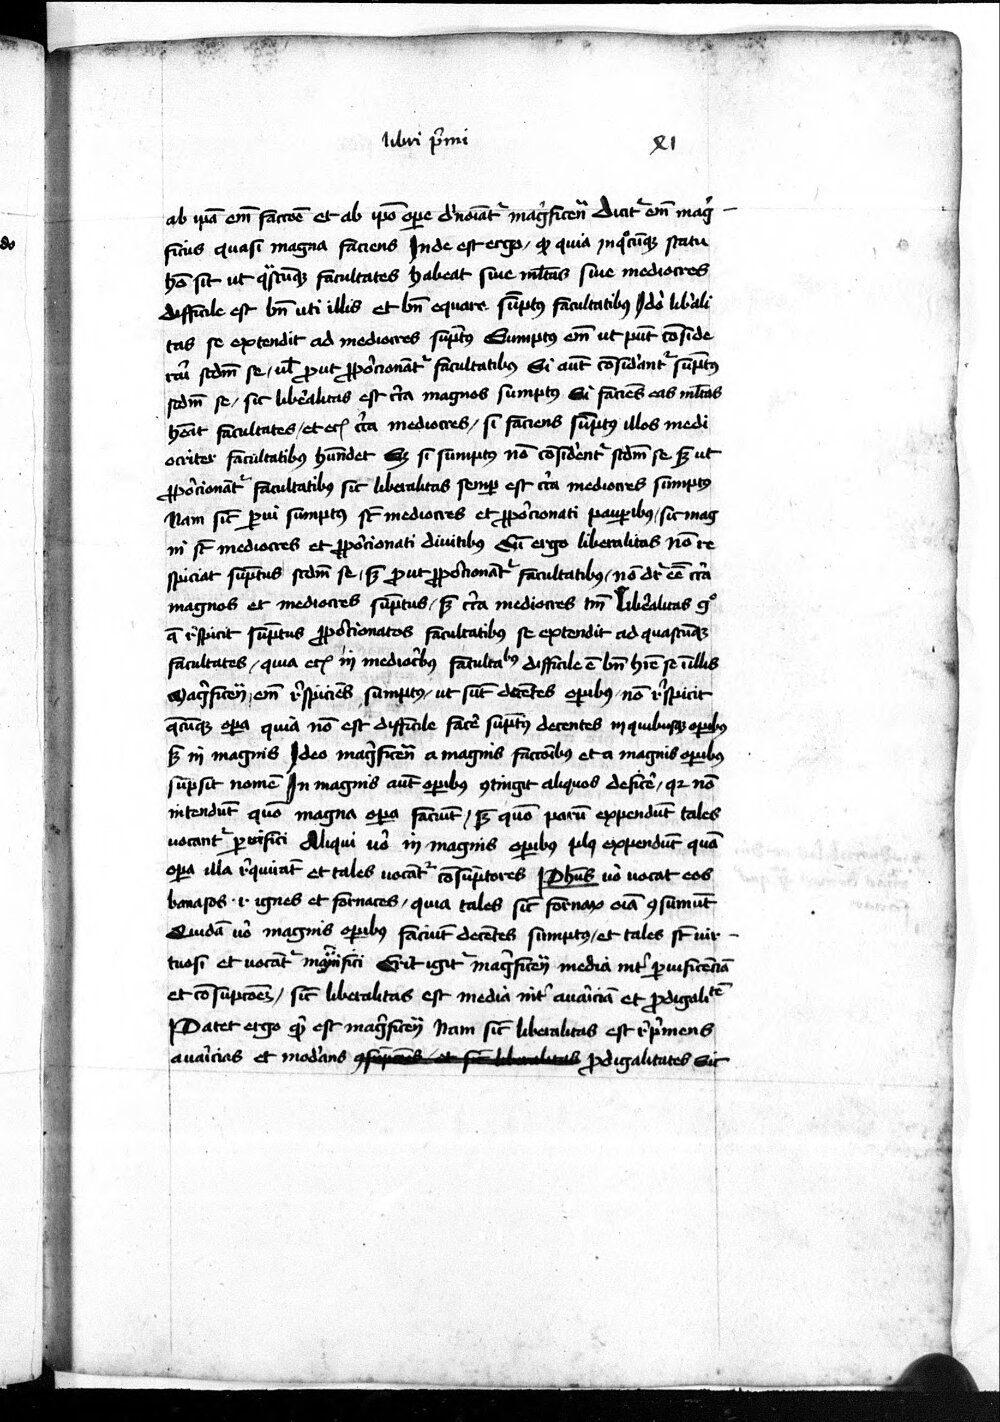 libri p̄mi XI
ab ip̄a em̄ faccōe et ab ip̄o oꝑe d'noīat᷑ mag̉ficen̄ Dicit᷑ em̄ mag̉
ficus quasi magna faciens Inde est ergo / ꝙ quia inq̊cūqꝫ statu
hō sit ut qͣscūqꝫ facultates habeat siue ml̄tas siue mediocres
difficile est bn̄ uti illis et bn̄ equare sūptꝰ facultatibꝰ Idō lib̉ali
tas se extendit ad mediocres sūptꝰ Sumptus em̄ ut pn̄t cōside
rari scdm̄ se / ul̄ prout ꝓporcionant᷑ facultatibꝰ Si aut̄ cōsiderant᷑ sūptꝰ
scdm̄ se / sic lib̉alitas est cͥca magnos sumptꝰ Si faciēs eas ml̄tas
hēat facultates / et ecꝫ cͥca mediocres / si faciens sūptꝰ illos medi
ocriter facultatibꝰ hūndet Sꝫ si sumptꝰ nō cōsiderent᷑ scdm̄ se sꝫ ut
ꝓporcionant᷑ facultatibꝰ sic liberalitas semꝑ est cͥca mediocres sumptꝰ
Nam sic̄ ꝑui sumptꝰ st̄ mediocres et ꝓporcionati pauꝑibꝰ / sic mag
ni st̄ mediocres et ꝓporcionati diuitibꝰ Cū ergo liberalitas nō re
spiciat sūptus scdm̄ se / sꝫ prout ꝓporcionant᷑ facultatibꝰ / nō dr̄ eē cͥca
magnos et mediocres sūptus / sꝫ cͥca mediocres tm̄ Lib̉alitas g̊
q̄ r̉spicit sūptus ꝓporcionatos facultatibꝰ se extendit ad quascūqꝫ
facultates / quia ecꝫ in mediocr̉bꝰ facultabꝰ difficile ē bn̄ hr̄e se ī illis
Mag̉ficen̄ em̄ r̉spiciēs sumptꝰ / ut sūt decētes oꝑibꝰ / nō r̉spicit
q̄cūqꝫ oꝑa quia nō est difficile facer̉ sūptꝰ decentes in quibusqꝫ oꝑibꝰ
sꝫ in magnis Ideo mag̉ficen̄ a magnis faccōibꝰ et a magnis oꝑibus
sūpsit nomē In magnis aut̄ oꝑibꝰ ꝯtingit aliquos deficer̉ / qꝛ nō
intendūt quō magna oꝑa faciūt / sꝫ quō parū expendūt tales
vocant᷑ ꝑuifici Aliqui uō in magnis oꝑibus plꝰ expendūt quā
oꝑa illa r̉quirāt et tales uocāt᷑ cōsūptores Ph̄us uō uocat eos
banasos · i · ignes et fornaces / quia tales sic̄ fornax oīa ꝯsumūt
Quidā uō magnis oꝑibus faciūt decētes sumptꝰ / et tales st̄ uir
tuosi et vocant᷑ mag̉nifici Erit igit᷑ mag̉ficen̄ media int̉ ꝑuificēciā
et cōsūpcōeꝫ / sic̄ liberalitas est media int̉ auariciā et ꝓdigalitē
Patet ergo qͥd est mag̉ficen̄ Nam sic̄ liberalitas est r̉p̉mens
auaricias et moderans ꝓdigalitates Sic